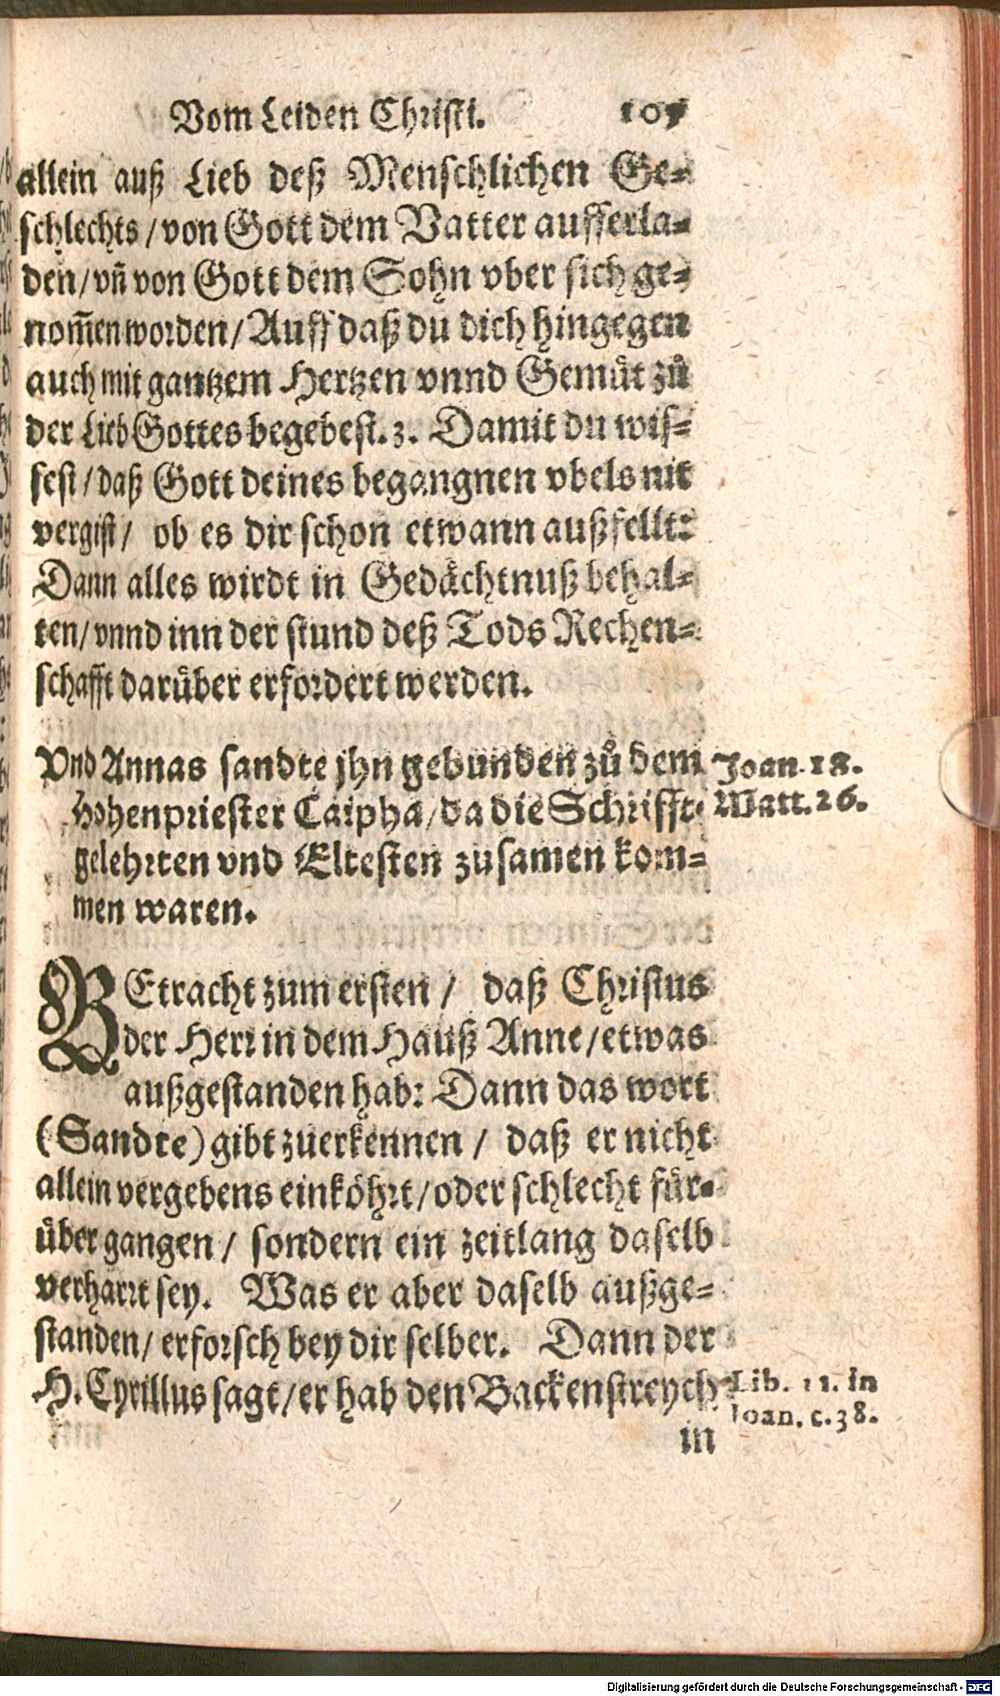 Vom Leiden Christi. 105
allein auß Lieb deß Menschlichen Ge-
schlechts / von Gott dem Vatter aufferla-
den / vñ von Gott dem Sohn vber sich ge-
nom̃en worden / Auff daß du dich hingegen
auch mit gantzem Hertzen vnnd Gemüt zů
der Lieb Gottes begebest. 3. Damit du wis-
sest / daß Gott deines begangnen vbels nit
vergist / ob es dir schon etwann außfellt:
Dann alles wirdt in Gedächtnuß behal-
ten / vnnd inn der stund deß Tods Rechen-
schafft darüber erfordert werden.
Vnd Annas sandte jhn gebunden zů dem
Joan. 18.
Hohenpriester Caipha / da die Schrifft-
Matt. 26.
gelehrten vnd Eltesten zusamen kom-
men waren.
BEtracht zum ersten / daß Christus
der Herr in dem Hauß Anne / etwas
außgestanden hab: Dann das wort
(Sandte) gibt zuerkennen / daß er nicht
allein vergebens einköhrt / oder schlecht für-
über gangen / sondern ein zeitlang daselb
verharrt sey. Was er aber daselb außge-
standen / erforsch bey dir selber. Dann der
H. Cyrillus sagt / er hab den Backenstreych
Lib. 11. in
Ioan. c. 38.
in
Digitalisierung gefördert durch die Deutsche Forschungsgemeinschaft - DFG